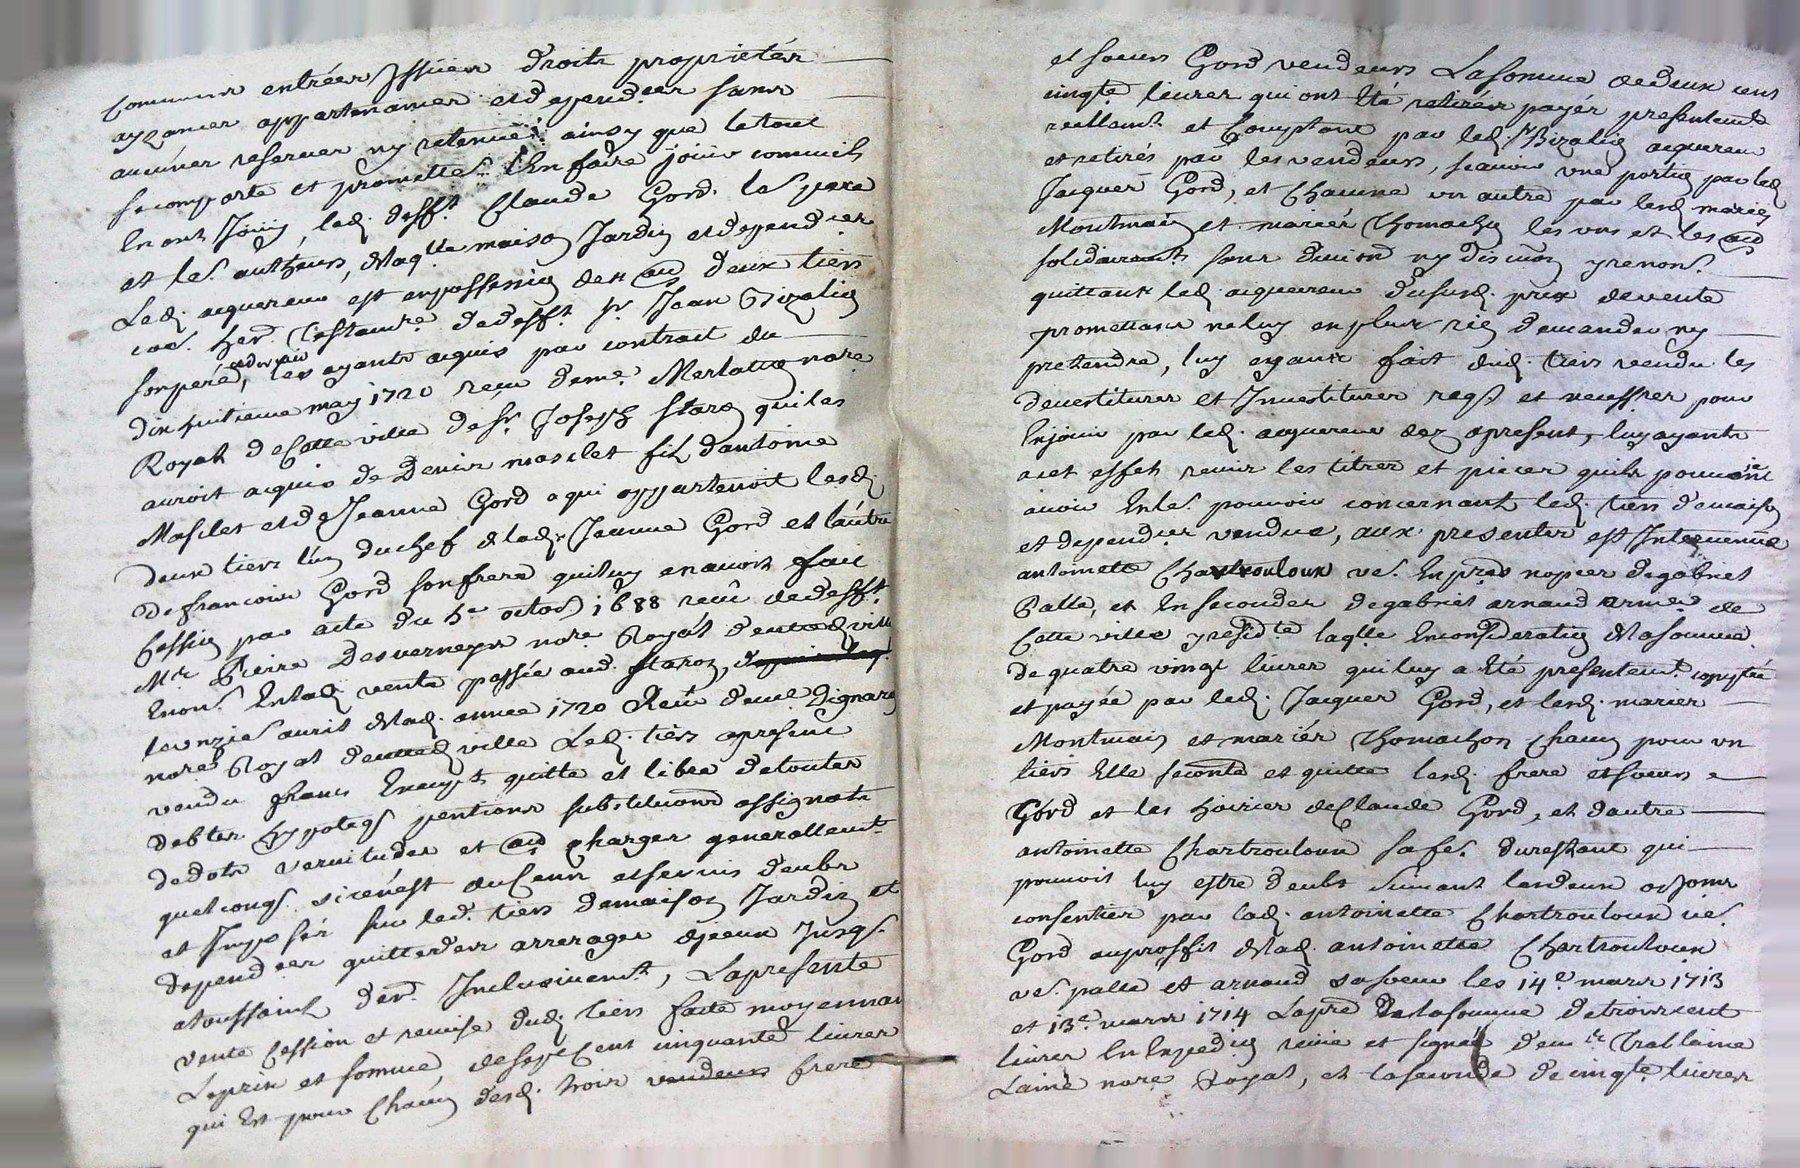 communes entrées Issües droits proprietés
ayzances appartenances et depend.ces sans
aucunes reserves ny retenües ainsy que le tout
se comporte et promette. En faire joüir comme ils
En ont Joüy, led. deff.t Claude Gord. le pere
et les autheurs, de laq.lle maison Jardin et depend.ces
Led. acquereur est en possession des deux tiers
her. testam.re de deff.t S.r Jean Bizalion
son pere, les ayants acquis par contrait du
dix huitieme may 1720 reçu de me. Merlatton no.re
Royal de Cette ville de S.r Joseph Staron qui les
auroit acquis de Denis masclet fils d'antoine
Masclet et de Jeanne Gord a qui appartenoit lesd.
deux tiers l'un du chef de lad. Jeanne Gord et l'autre
De francoise Gord son frere qui luy en avoit fait
Cession par acte du 5.e octob. 1688 reçu de deff.t
M.re Pierre Desverneys no.re Royal de cette ville
Enon. En lad. vente passée aud. Staron,
le onzie. avril de lad. année 1720 Reçu de me. Dignaron
no.re Royal de cetted. ville Led. tiers a present
vendu franc Exempt quitte et libre de toutes
debtes hypoteqs pentions substitutions assignats
de dots servitudes et charges generallem.t
quelconqs. si ce n'est du Cens et servis deubs
et Imposés sur led. tiers de maison Jardin et
depend.ces quitte des arrerages d'jceux Jusqs.
a toussaint der. Inclusivem.t, La presente
vente Cession et remise dud. tiers faite moyennant
Le prix et somme de sept Cent cinquante livres
qui Est pour Chacun desd. trois vendeurs frere
et soeurs Gord vendeurs La somme de deux cent
cinqte. livres qui ont Eté retirées payés presentem.t
reellem.t et Comptant par led. S.r Bizalion acquereur
et retirés par les vendeurs, scavoir une portion par led.
Jacques Gord, et Chacune un autre par lesd. mariés
Montmain et mariés Thomachon les uns et les
solidairem.t sans division ny discution y renon.t
quittant led. acquereur du susd. prix de vente
promettans ne luy en plus rien demander ny
pretendre, luy ayant fait dud. tiers vendu les
devestitures et Investitures reqs. et necessres pour
En joüir par led. acquereur dez a present, luy ayants
a cet effet remis les titres et pieces quils pouvoient
avoir En le. pouvoir concernant led. tiers de maison
et depend.ces vendue, aux presentes est Intervenüe
antoinette Chartrouloux ve. En pres nopces de gabriel
Palle, et En secondes de gabriel arnaud arme. de
Cette ville y resid.te laq.lle En consideration de la somme
de quatre vingt livres qui luy a Eté presentem.t comptée
et payée par led. Jacques Gord, et lesd. mariés
Montmain et mariés Thomachon chacun pour un
tiers Elle se conte et quitte lesd. frere et soeurs
Gord et les hoiries de Claude Gord, et d'autre
antoinette Chartrouloux sa fe. du restant qui
pouvoit luy estre deubt suivant les deux
consenties par lad. antoinette Chartrouloux ve.
Gord au proffit de lad. antoinette Chartrouloux
ve. palle et arnaud sa soeur les 14.e mars 1713
et 13.e mars 1714 La pre. De la somme de trois cent
livres En Expedion reçüe et signée de m.tre Trablaine
Laine no.re Royal, et la seconde de cinqte. livres